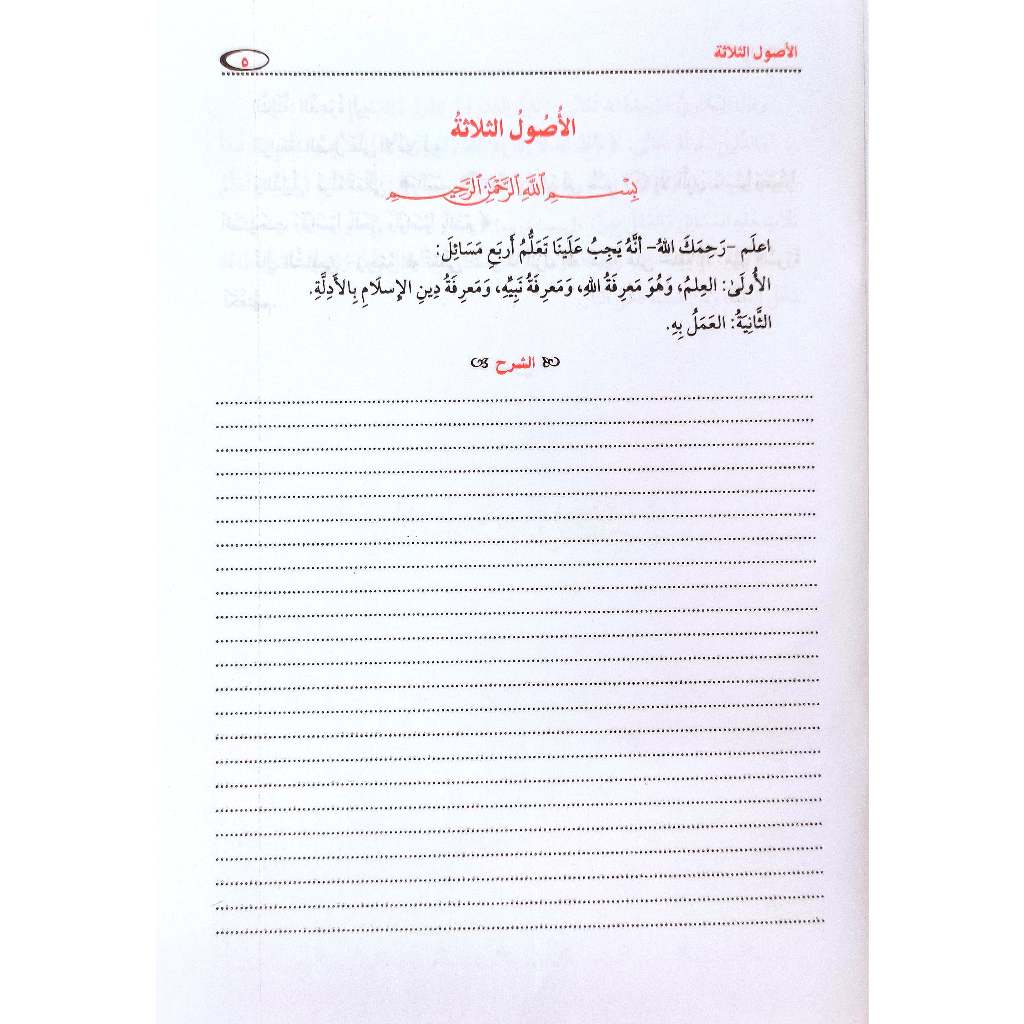 الأصول الثلاثة
٥
الأُصُولُ الثلاثةُ
بِسْمِ اللَّهِ الرَّحْمَنِ الرَّحِيمِ
اعلَم -رَحِمَكَ اللهُ- أنَّهُ يَجِبُ عَلَينَا تَعَلُّمُ أَربَعِ مَسَائِلَ:
الأُولَىٰ: العِلمُ، وَهُوَ مَعرِفَةُ اللهِ، وَمَعرِفَةُ نَبِيِّهِ، وَمَعرِفَةُ دِينِ الإِسلَامِ بِالأَدِلَّةِ.
الثَّانِيَةُ: العَمَلُ بِهِ.
الشرح